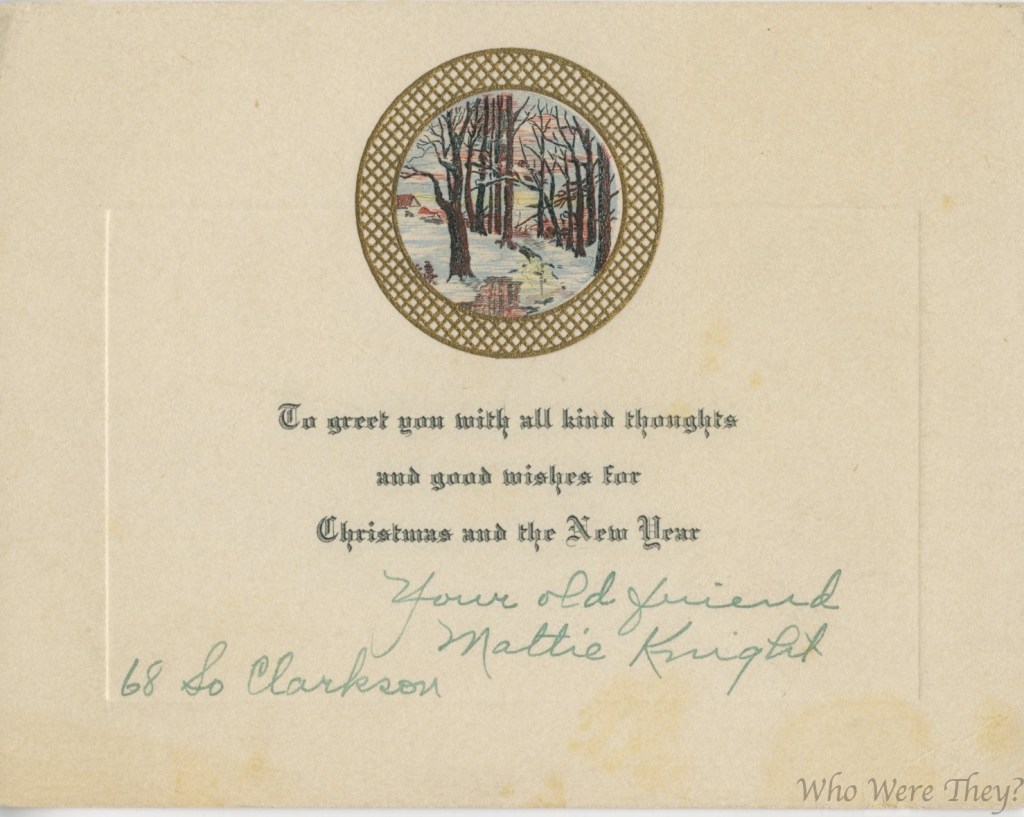 To greet you with all kind thoughts
and good wishes for
Christmas and the New Year
Your old friend
Mattie Knight
68 So Clarkson
Who Were They?